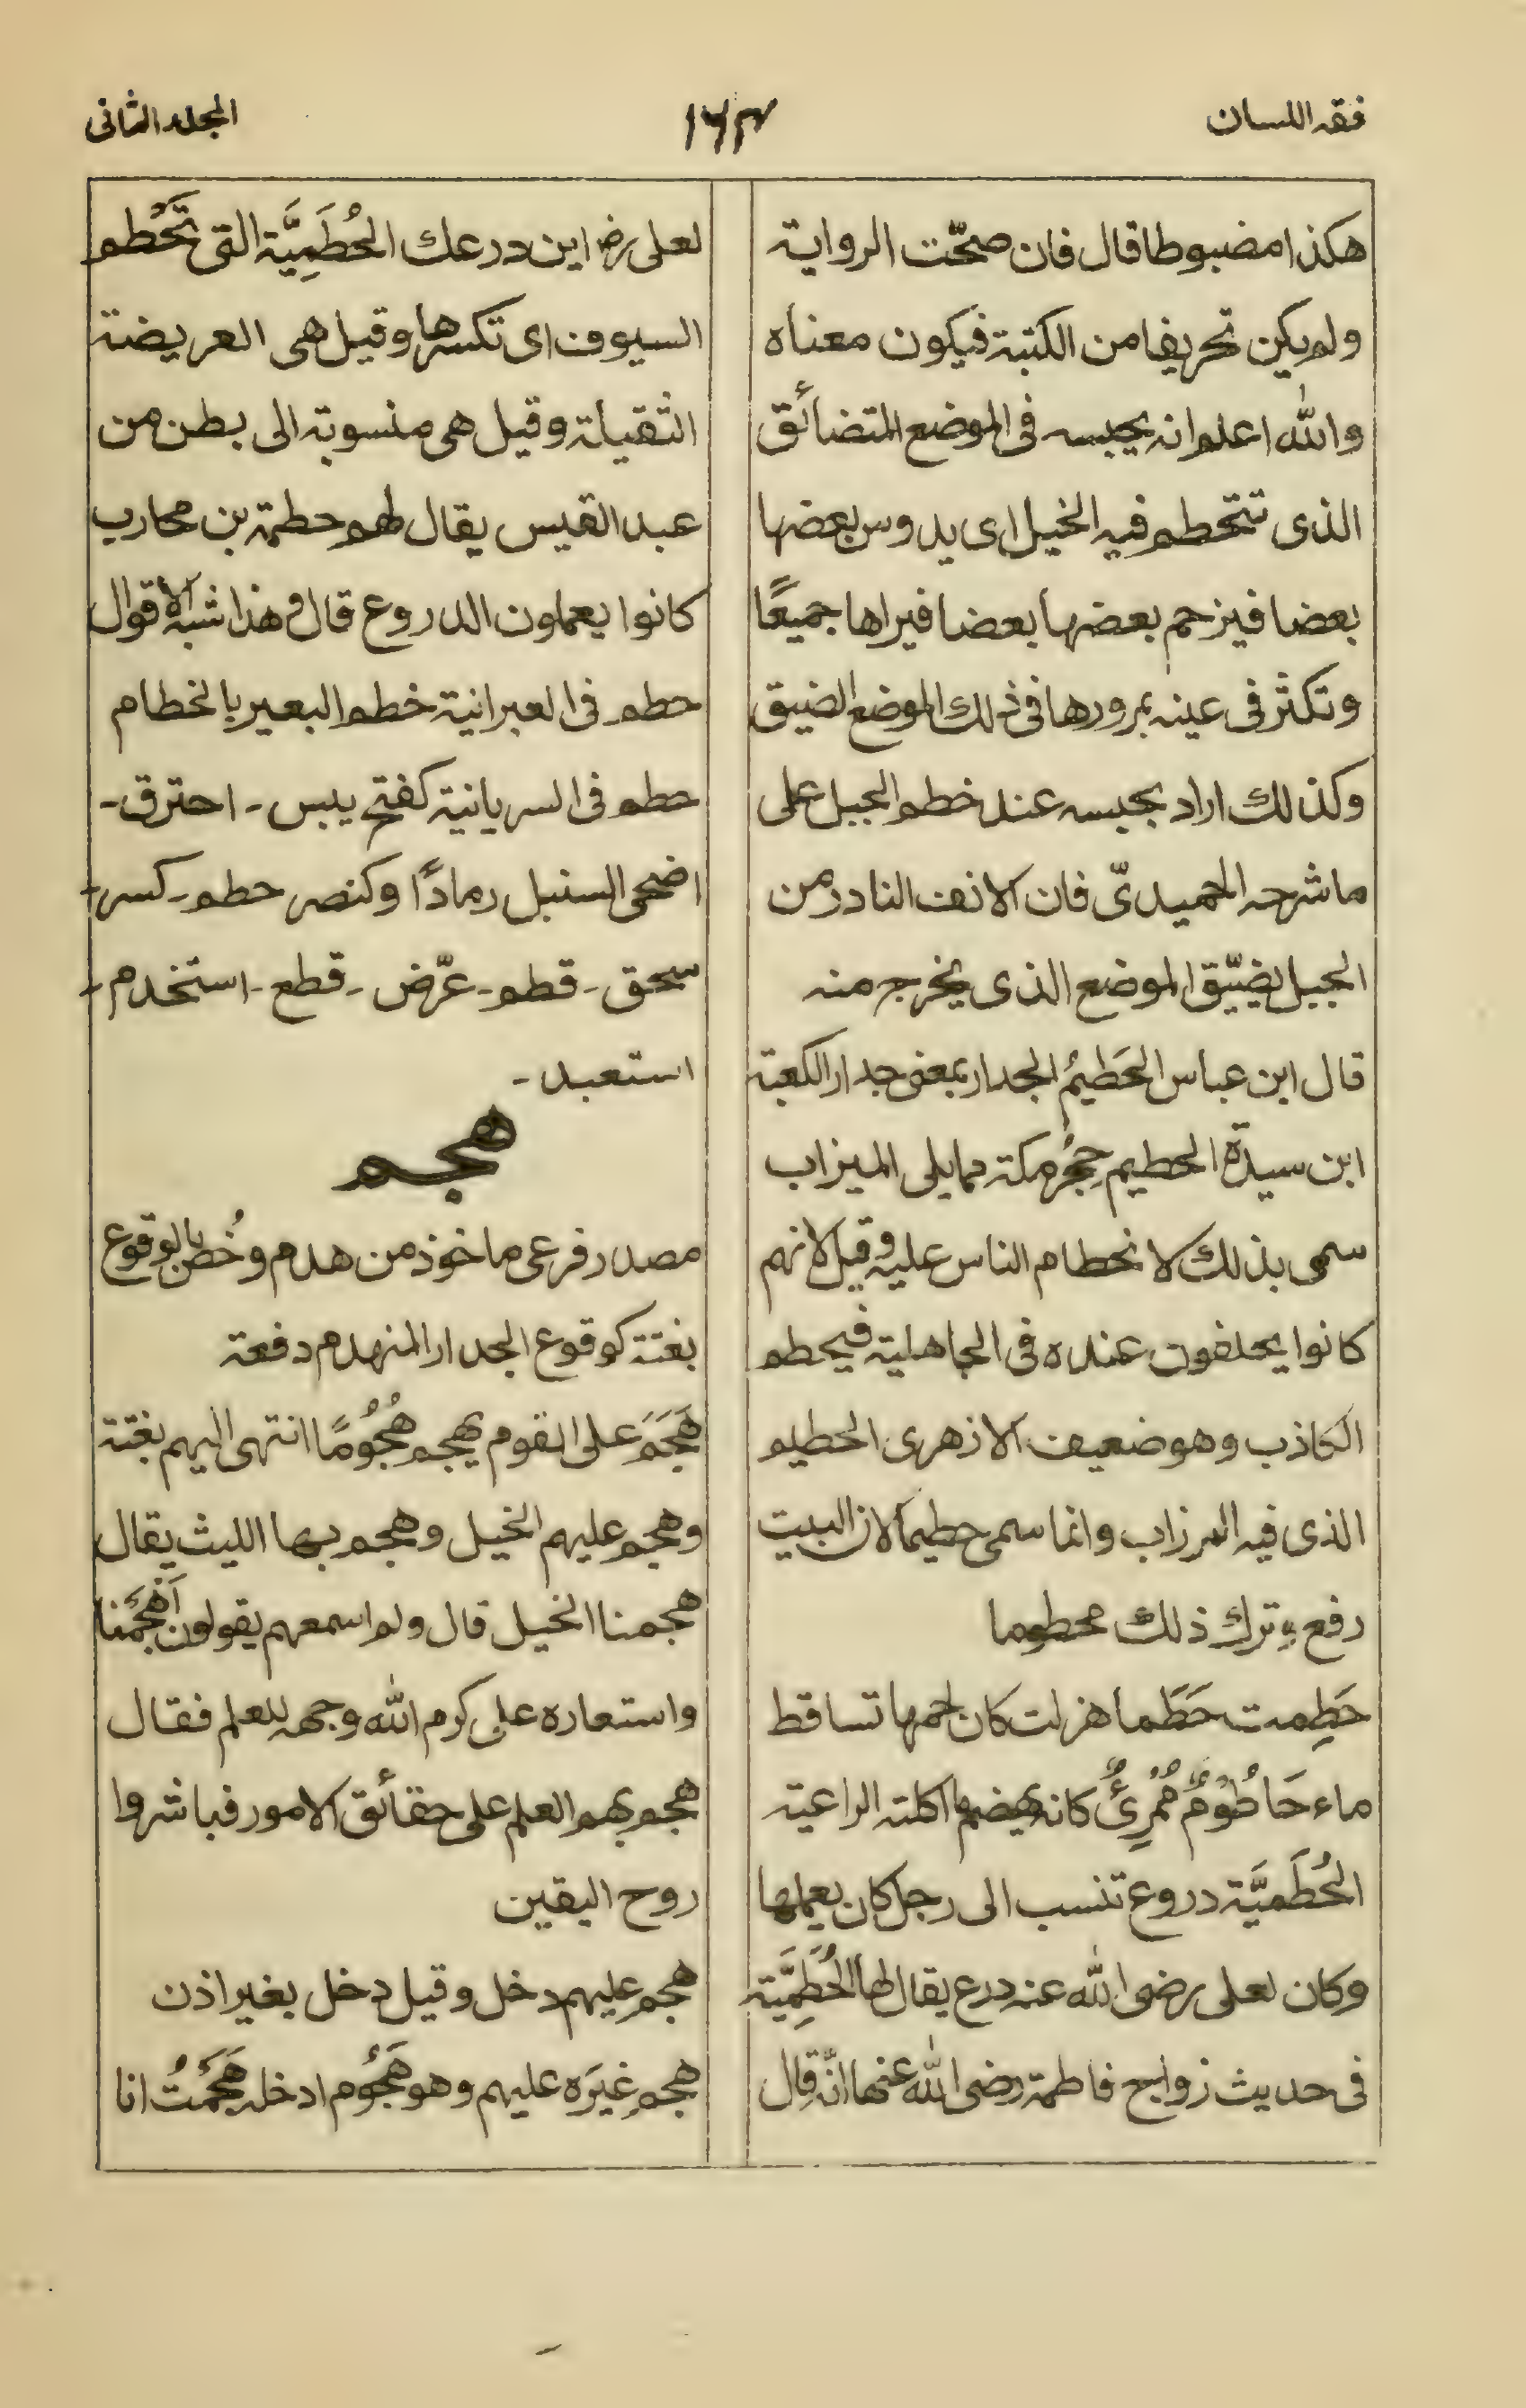 فقه اللسان
١٦٣
المجلد الثانى
هكذا مضبوطا قال فان صحّت الرواية
ولم يكن تحريفا من الكتبة فيكون معناه
والله اعلم انه يحبسه فى الموضع المتضائق
الذى تتحطم فيه الخيل اى يدوس بعضها
بعضا فيزحم بعضها بعضا فيراها جميعًا
وتكثر فى عينه بمرورها فى ذلك الموضع الضيق
وكذلك اراد بحبسه عند خطم الجبل على
ما شرحه الحميدىّ فان الانف النادر من
الجبل يضيّق الموضع الذى يخرج منه
قال ابن عباس الحَطيمُ الجدار بمعنى جدار الكعبة
ابن سيدة الحطيم حِجْرُ مكة مما يلى الميزاب
سمى بذلك لانحطام الناس عليه وقيل لانهم
كانوا يحلفون عنده فى الجاهلية فيحطم
الكاذب وهو ضعيف الازهرى الحطيم
الذى فيه المرزاب وانما سمى حطيما لان البيت
رفع وترك ذلك محطوما
حَطِمت حَطَما هزلت كان لحمها تساقط
ماء حَاطُوْمٌ مُمْرِئٌ كانه يهضم ما اكلته الراعية
الحُطَمِيَّة دروع تنسب الى رجل كان يعملها
وكان لعلى رضى الله عنه درع يقال لها الحُطَمِيَّة
فى حديث زواج فاطمة رضى الله عنها انّه قال
لعلى رض اين درعك الحُطَمِيَّة التى تَحْطم
السيوف اى تكسرها وقيل هى العريضة
الثقيلة وقيل هى منسوبة الى بطن من
عبد القيس يقال لهم حطمة بن محارب
كانوا يعملون الدروع قال وهذا اشبه الأقوال
حطم فى العبرانية خطم البعير بالخطام
حطم فى السريانية كفتح يبس - احترق -
اضحى السنبل رمادًا وكنصر حطم - كسر -
سحق - قطم - عرّض - قطع - استخدم -
استعبد -
هجم
مصدر فرعى ماخوذ من هدم وخُص بالوقوع
بغتة كوقوع الجدار المنهدم دفعة
هَجَمَ على القوم يهجم هُجُومًا انتهى اليهم بغتة
وهجم عليهم الخيل وهجم بها الليث يقال
هجمنا الخيل قال ولم اسمعهم يقولون اَهْجَمْنا
واستعاره على كرم الله وجهه للعلم فقال
هجم بهم العلم على حقائق الامور فباشروا
روح اليقين
هجم عليهم دخل وقيل دخل بغير اذن
هجم غيَره عليهم وهو هَجُوم ادخله هَجَمْتُ انا